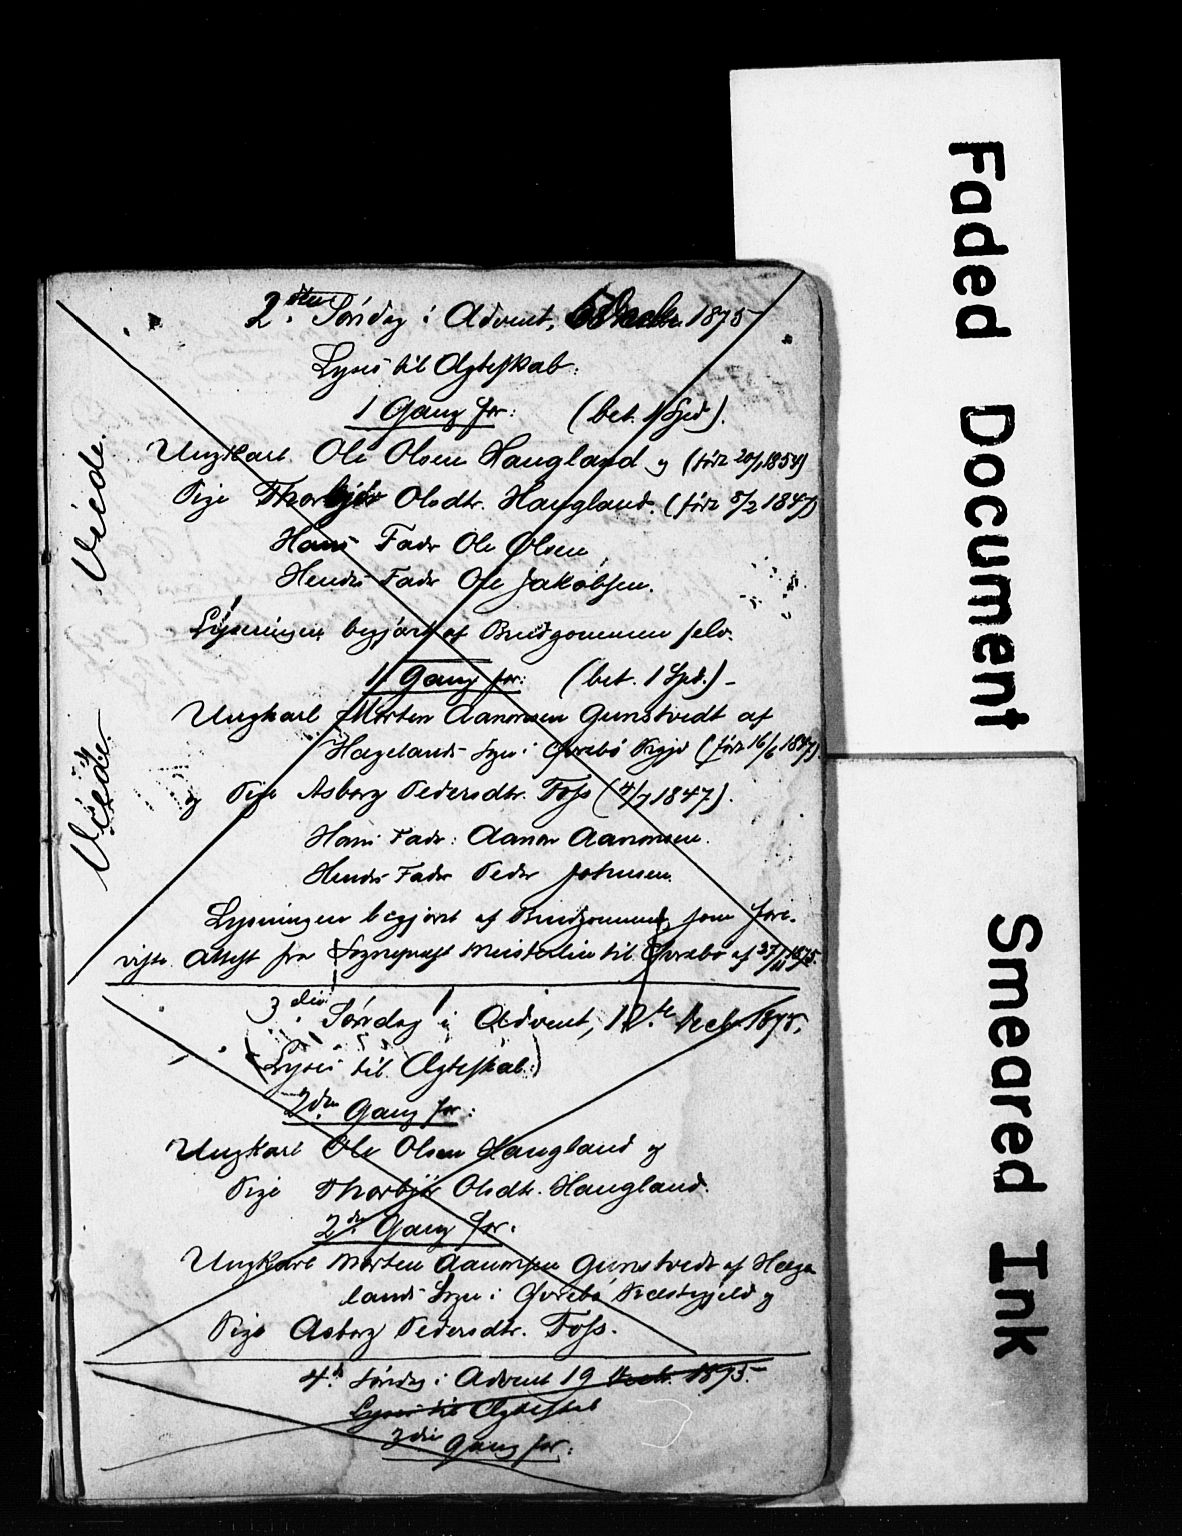 2den Søndag i Advent, 5 Decbr. 1875
Lyses til Ægteskab.
1 Gang for: (bet. 1 Spd).
Ungkarl Ole Olsen Haugland og (født 20/1 1854)
Pige Thorbjør Olsdtr. Haugland. (født 5/2 1847)
Hans Fader Ole Olsen
Hendes Fader Ole Jakobsen.
Lysningen begjært af Brudgommen selv.
1 Gang for: (bet. 1 Spd.) -
Ungkarl Morten Aanonsen Gunstvedt af
Hægelands Sogn i Øvrebø (født 16/6 1847).
og Pige Asborg Pedersdtr. Foss (4/7 1847).
Hans Fader: Aanon Aanonsen.
Hendes Fader Peder Johnsen.
Lysningen begjæret af Brudgommen, som fore-
viste Attest fra Sognepræst til Øvrebø af 27/11 1875.
Viede.
Viede.
3die Søndag i Advent, 12te Decbr 1875.
(Lyses til Ægteskab:)
2den Gang for:
Ungkarl Ole Olsen Haugland og
Pige Thorbjør Olsdtr. Haugland.
2den Gang for:
Ungkarl Morten Aanonsen Gunstvedt af Hæge
lands Sogn i Øvrebø Præstegjeld og
Pige Asborg Pedersdtr. Foss.
4de Søndag i Advent 19 Decbr. 1875.
Lyses til Ægteskab
3die Gang for:
Faded Document
Smeared Ink